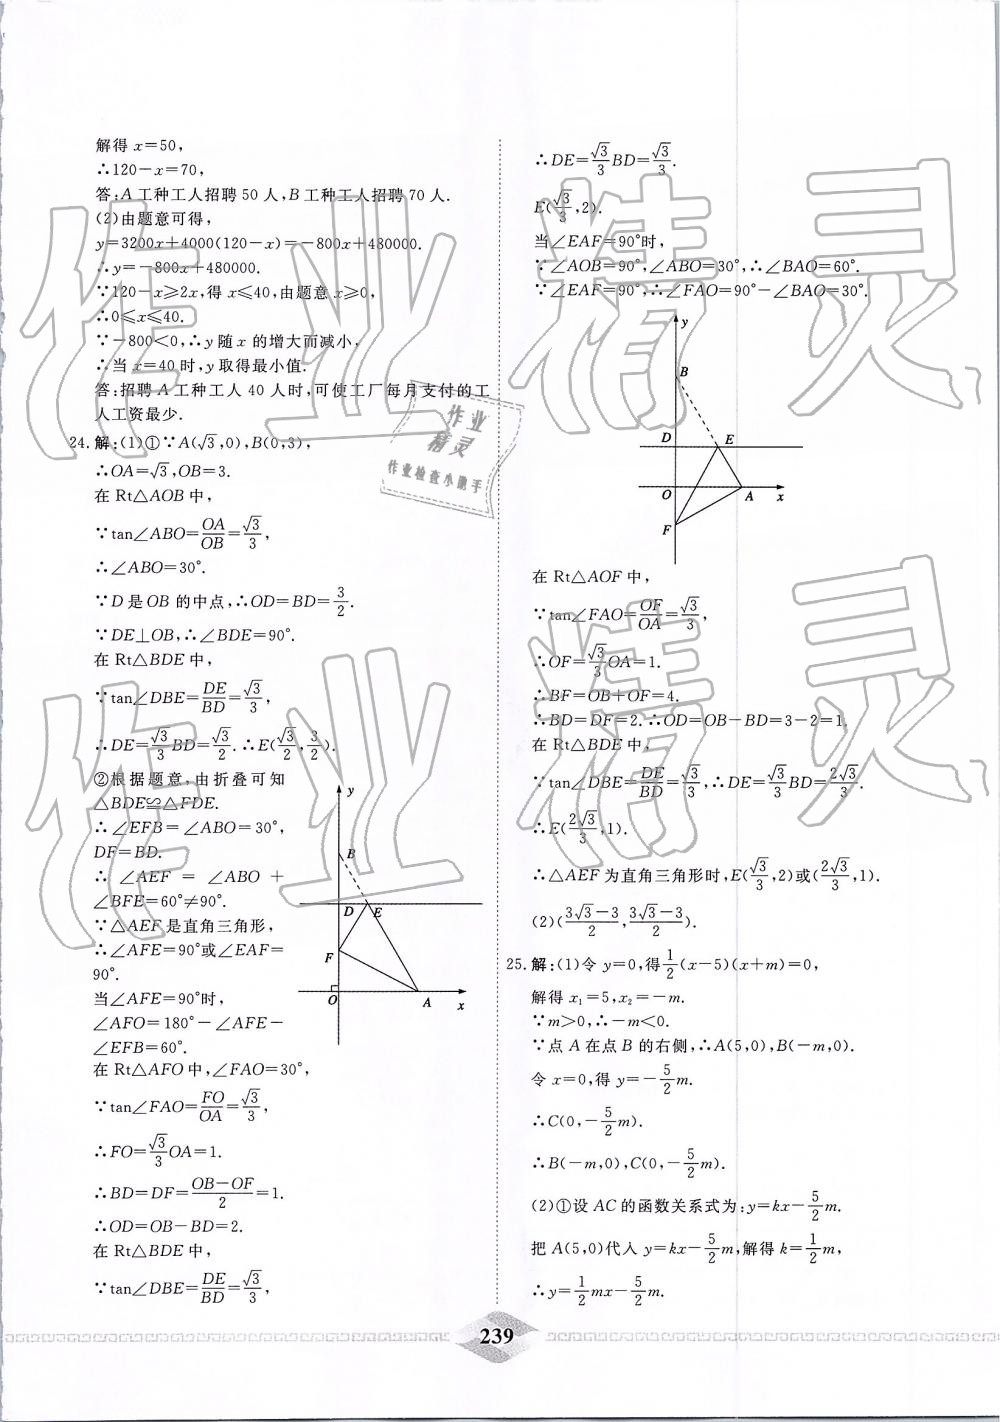 解得 x=50,
∴120-x=70,
答:A 工种工人招聘 50 人,B 工种工人招聘 70 人.
(2)由题意可得,
y=3200x+4000(120-x)=-800x+480000.
∴y=-800x+480000.
∵120-x≥2x,得 x≤40,由题意 x≥0,
∴0≤x≤40.
∵-800<0,∴y 随 x 的增大而减小,
∴当 x=40 时,y 取得最小值.
答:招聘 A 工种工人 40 人时,可使工厂每月支付的工
人工资最少.
24.解:(1)①∵A(√3,0),B(0,3),
∴OA=√3,OB=3.
在 Rt△AOB 中,
∵tan∠ABO=OA/OB=√3/3,
∴∠ABO=30°.
∵D 是 OB 的中点,∴OD=BD=3/2.
∵DE⊥OB,∴∠BDE=90°.
在 Rt△BDE 中,
∵tan∠DBE=DE/BD=√3/3,
∴DE=√3/3BD=√3/2.∴E(√3/2,3/2).
②根据题意,由折叠可知
△BDE≌△FDE.
∴∠EFB=∠ABO=30°,
DF=BD.
∴ ∠AEF = ∠ABO +
∠BFE=60°≠90°.
∵△AEF是直角三角形,
∴∠AFE=90°或∠EAF=
90°.
当∠AFE=90°时,
∠AFO=180°-∠AFE-
∠EFB=60°.
y
B
D
E
F
O
A
x
在 Rt△AFO 中,∠FAO=30°,
∵tan∠FAO=FO/OA=√3/3,
∴FO=√3/3OA=1.
∴BD=DF=OB-OF/2=1.
∴OD=OB-BD=2.
在 Rt△BDE 中,
∵tan∠DBE=DE/BD=√3/3,
∴DE=√3/3BD=√3/3.
E(√3/3,2).
当∠EAF=90°时,
∵∠AOB=90°,∠ABO=30°,∴∠BAO=60°.
∵∠EAF=90°,∴∠FAO=90°-∠BAO=30°.
y
B
D
E
O
A
x
F
在 Rt△AOF 中,
∵tan∠FAO=OF/OA=√3/3,
∴OF=√3/3OA=1.
∴BF=OB+OF=4.
∴BD=DF=2.∴OD=OB-BD=3-2=1.
在 Rt△BDE 中,
∵tan∠DBE=DE/BD=√3/3,∴DE=√3/3BD=2√3/3.
∴E(2√3/3,1).
∴△AEF 为直角三角形时,E(√3/3,2)或(2√3/3,1).
(2)(3√3-3/2,3√3-3/2).
25.解:(1)令 y=0,得1/2(x-5)(x+m)=0,
解得 x₁=5,x₂=-m.
∵m>0,∴-m<0.
∵点 A 在点 B 的右侧,∴A(5,0),B(-m,0).
令 x=0,得 y=-5/2m.
∴C(0,-5/2m).
∴B(-m,0),C(0,-5/2m).
(2)①设 AC 的函数关系式为:y=kx-5/2m.
把 A(5,0)代入 y=kx-5/2m,解得 k=1/2m,
∴y=1/2mx-5/2m.
239
作业精灵
作业精灵
作业
精灵
作业检查小助手